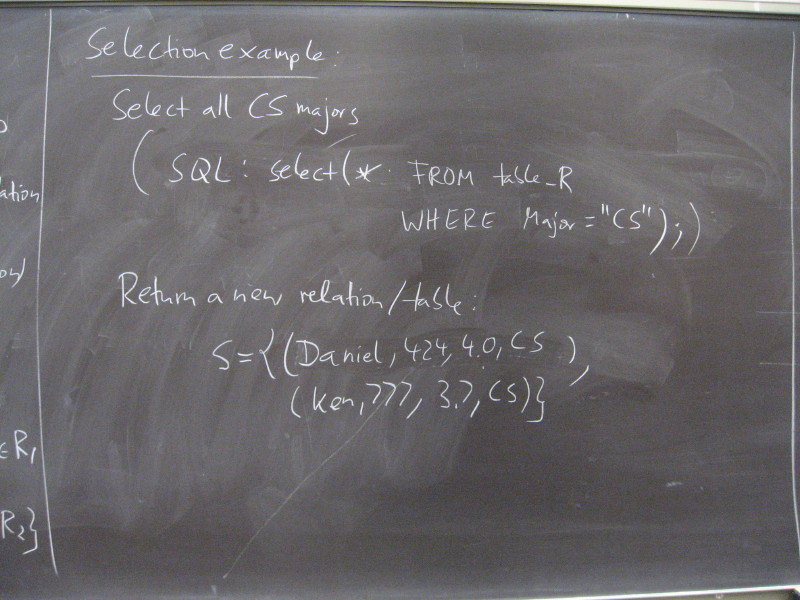 Selection example:
Select all CS majors
(SQL: select(* FROM table_R
WHERE Major="CS");)
Return a new relation/table:
S={(Daniel, 424, 4.0, CS),
(Ken, 777, 3.7, CS)}
ation
∈R1
R2}